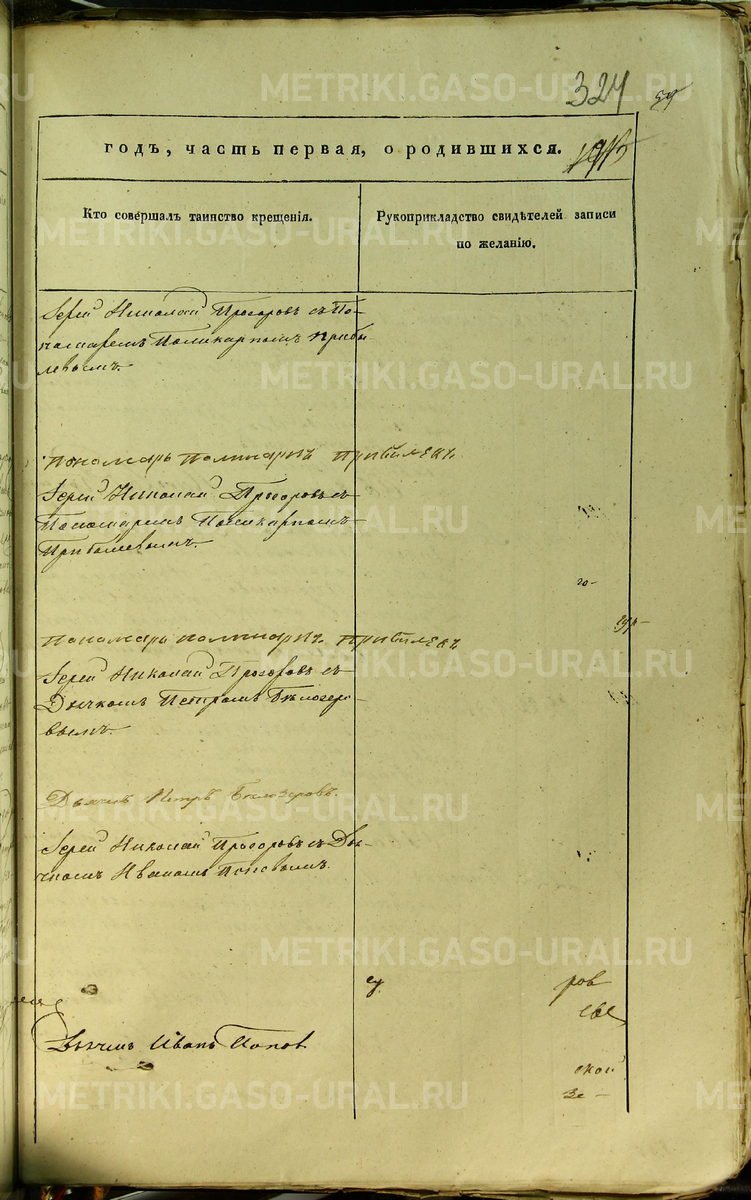 324
годъ, часть первая, о родившихся.
Кто совершалъ таинство крещенія.
Рукоприкладство свидѣтелей записи
по желанію.
Іерей Николай Прозоровъ съ По-
номаремъ Поликарпомъ Прибы
левымъ.
Пономарь Поликарпъ Прибылевъ
Іерей Николай Прозоровъ съ
Пономаремъ Поликарпомъ
Прибылевымъ.
го-
Пономарь Поликарпъ Прибылевъ
Іерей Николай Прозоровъ съ
Дьячкомъ Петромъ Бѣлозеро-
вымъ.
Дьячекъ Петръ Белозеровъ.
Іерей Николай Прозоровъ съ Дья-
чкомъ Иваномъ Поповымъ.
ров
Дьячекъ Иванъ Попов
ской
METRIKI.GASO-URAL.RU